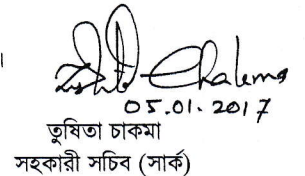 Tushita Chakma
05.01.2017
তুষিতা চাকমা
সহকারী সচিব (সার্ক)